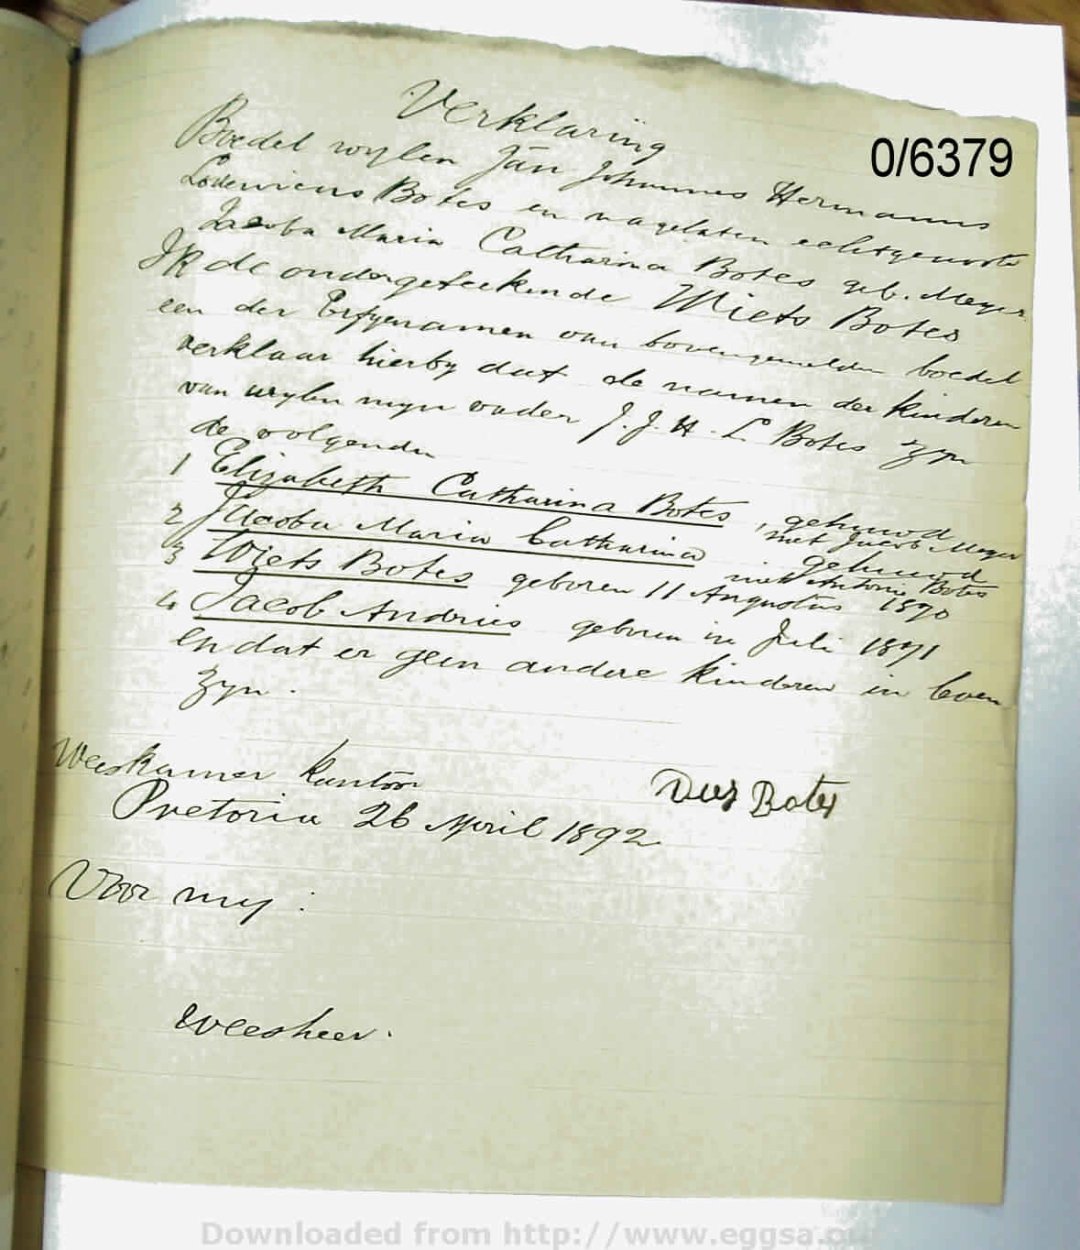 Verklaring
0/6379
Boedel wylen Jan Johannes Hermanus
Lodewicus Botes en nagelaten echtgenoote
Jacoba Maria Catharina Botes geb. Meyer.
Ik de ondergeteekende Wiets Botes
een der Erfgenamen van bovengemelden boedel
verklaar hierby dat de namen der kinderen
van wylen myn vader J. J. H. L. Botes zyn
de volgenden
1 Elizabeth Catharina Botes, gehuwd
met Jacob Meyer
2 Jacoba Maria Catharina gehuwd
met Antonie Botes
3 Wiets Botes geboren 11 Augustus 1870
4 Jacob Andries geboren in Juli 1871
En dat er geen andere kinderen in leven
zyn.
Weeskamer kantoor
Botes
Pretoria 26 April 1892
Voor my:
Weesheer.
Downloaded from http://www.eggsa.o